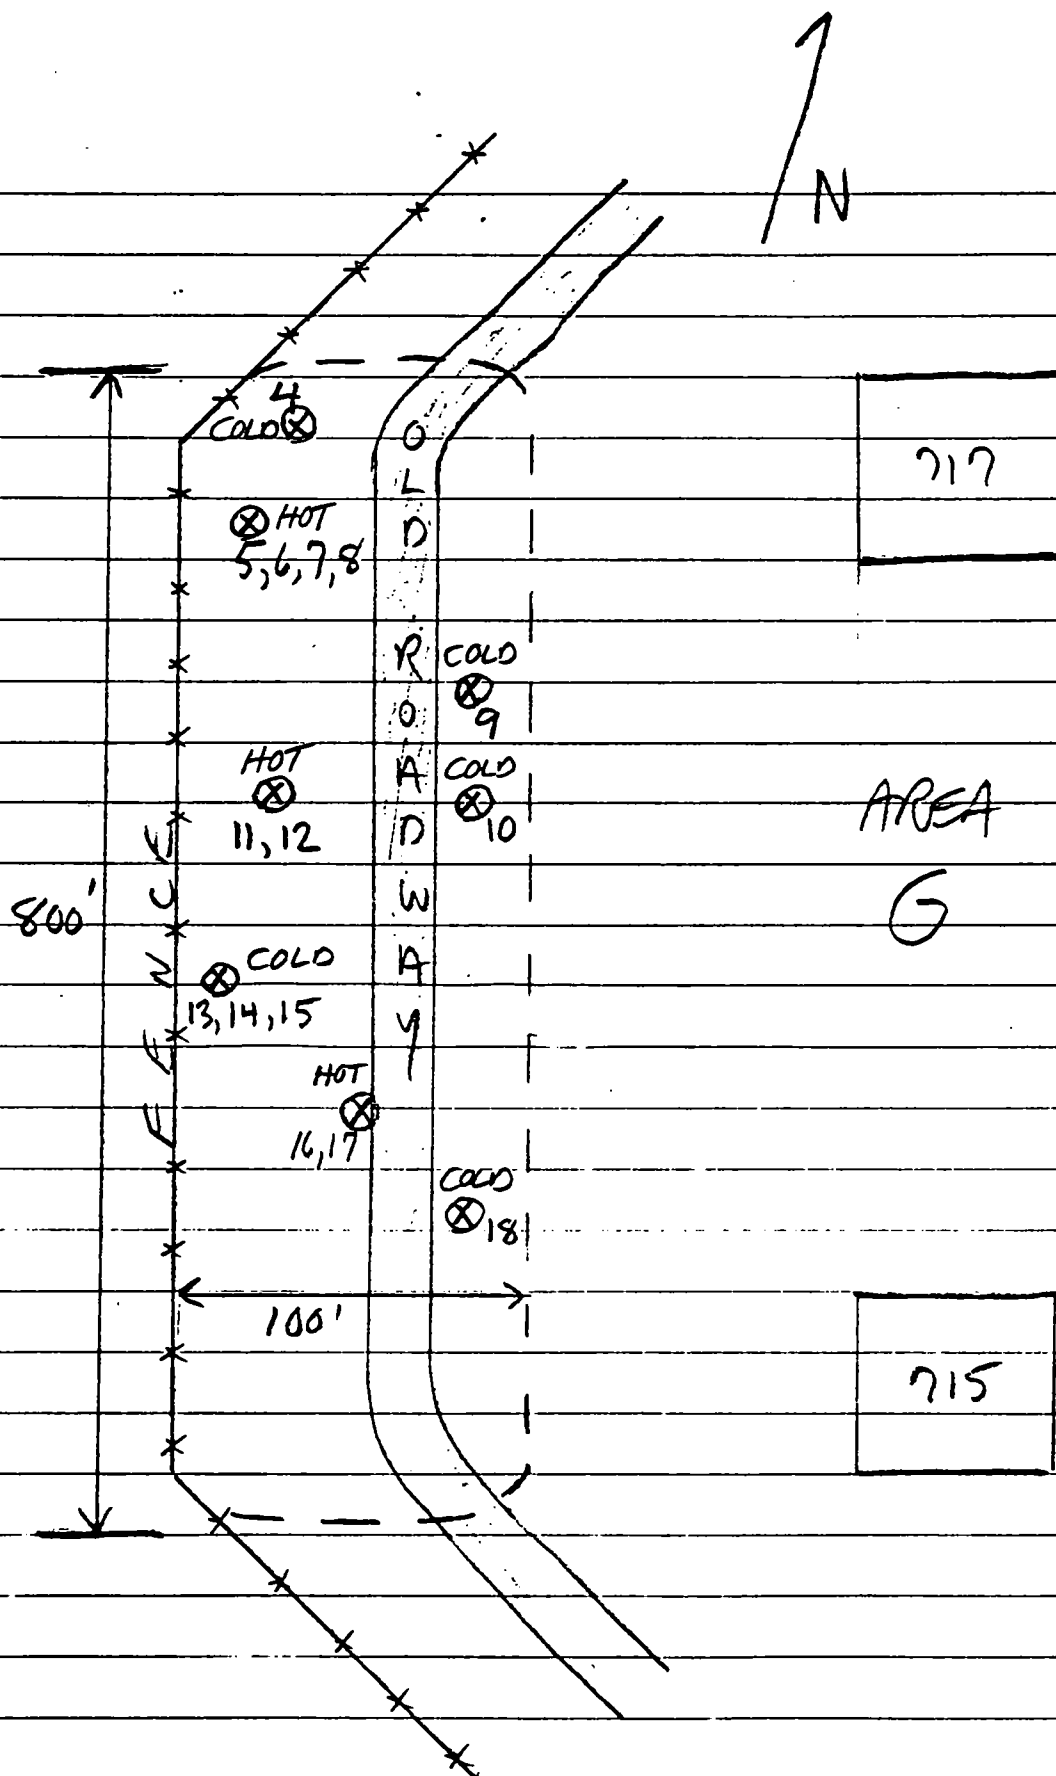 N
4
COLD
717
HOT
5,6,7,8
OLD ROADWAY
COLD
9
HOT
11,12
COLD
10
AREA
G
800'
FENCE
COLD
13,14,15
HOT
16,17
COLD
18
100'
715